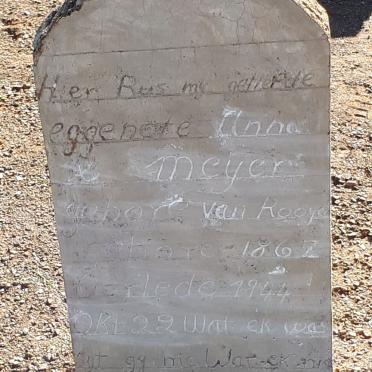 Hier Rus my geliefde
eggenote Anna
Meyer
gebore van Rooye
1867
Oorlede 1944
OKT 22 Wat ek was
gy nie Wat ek